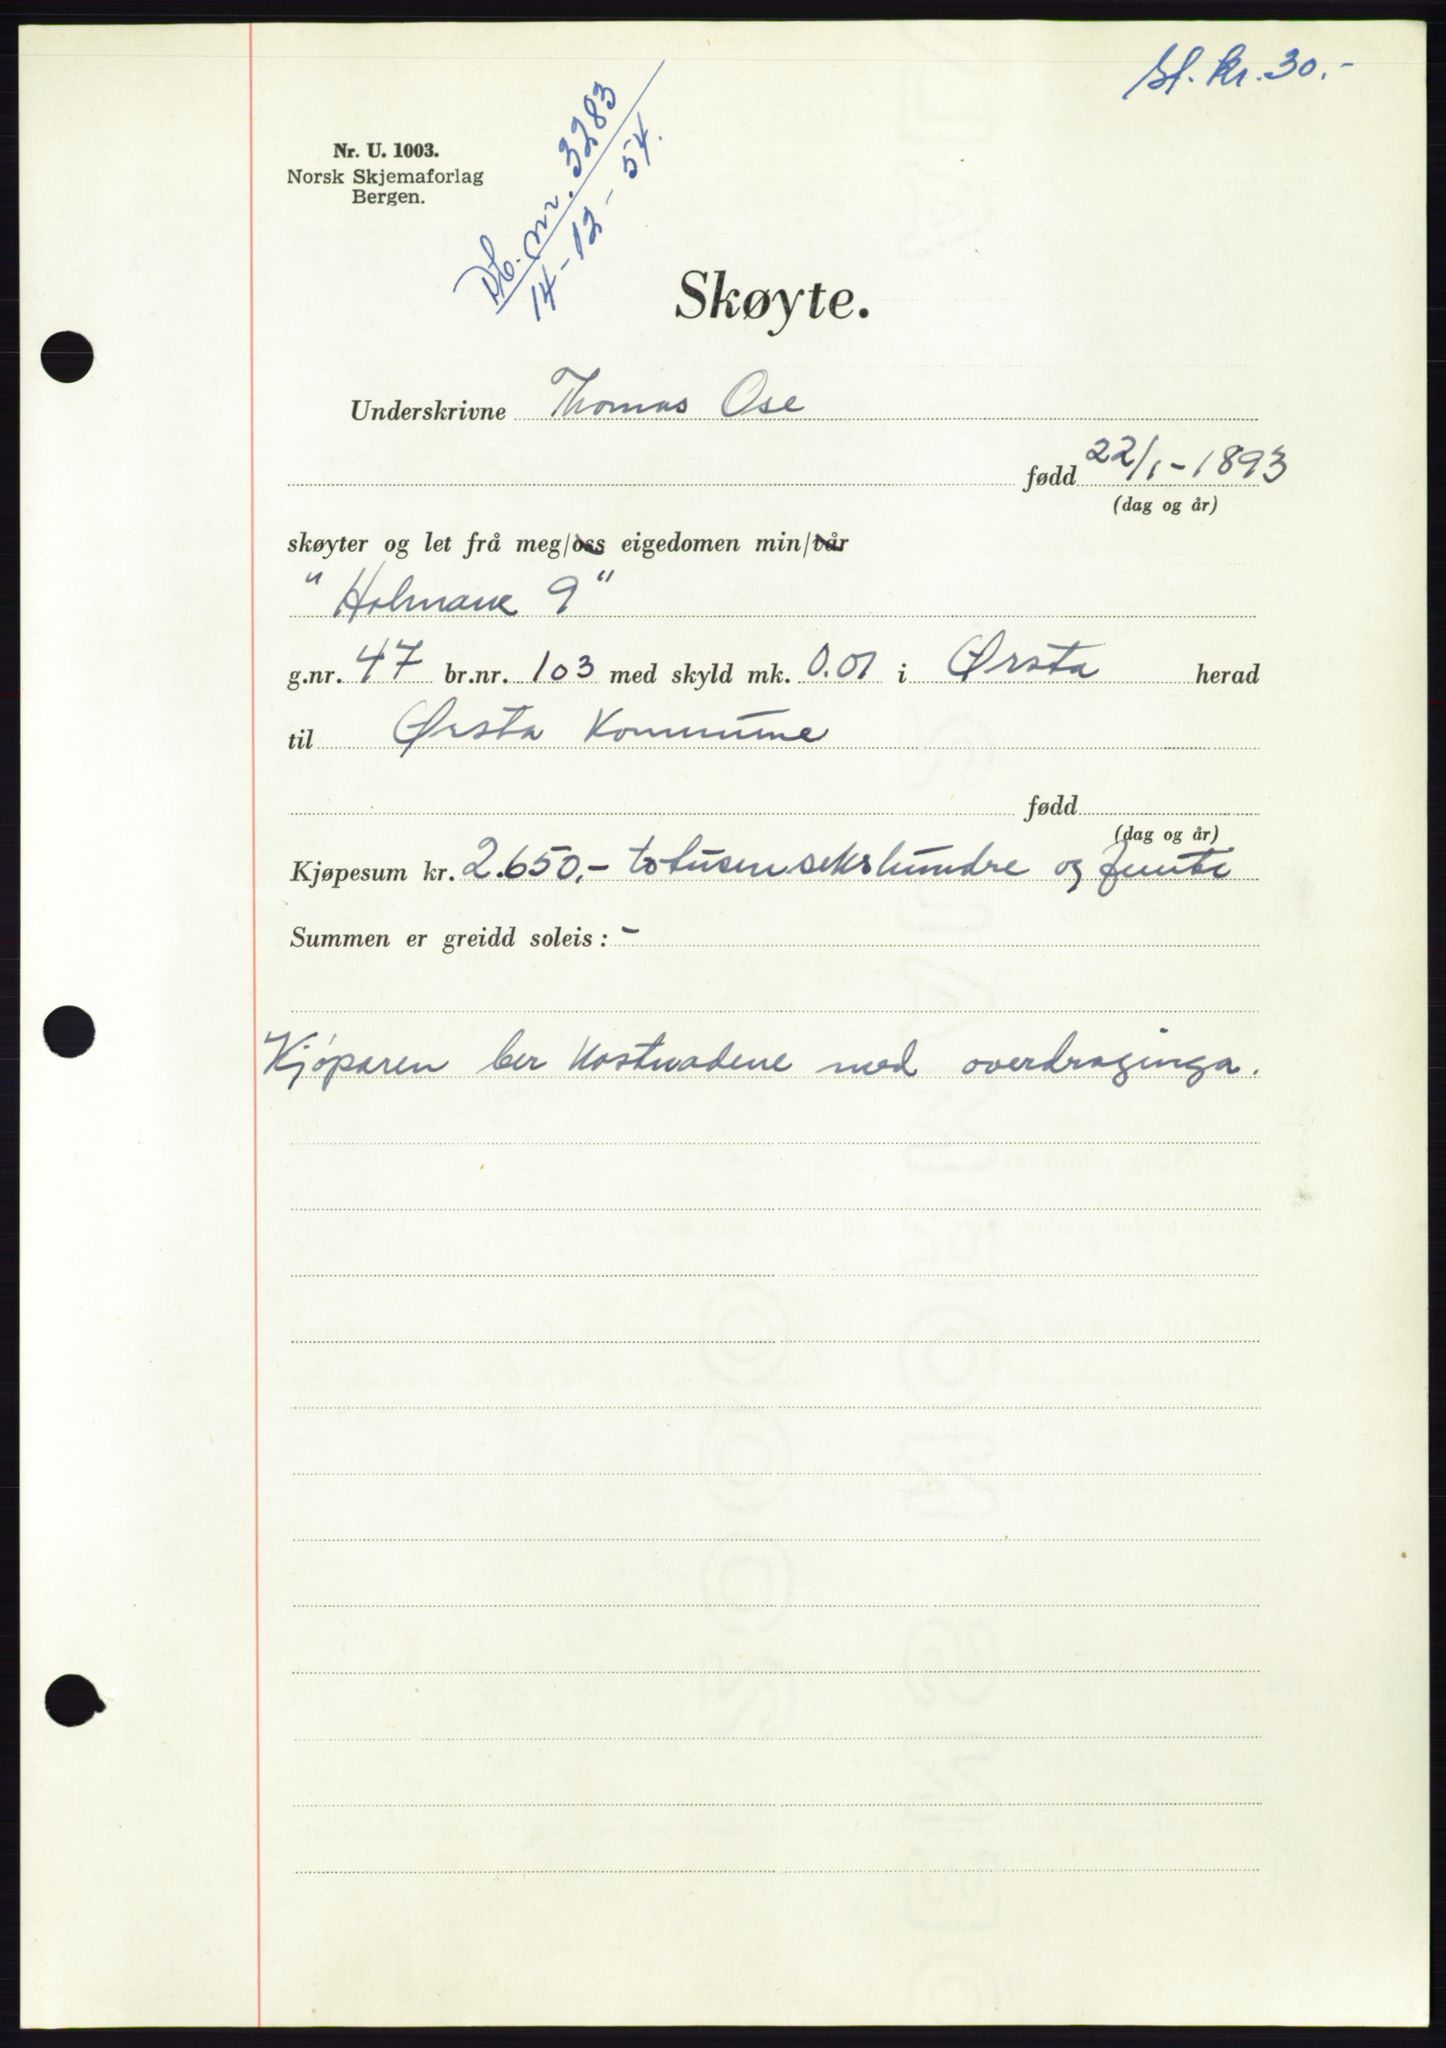 St. kr. 30.-
Nr. U. 1003.
Norsk Skjemaforlag
Bergen.
Db. nr. 3283
14-12-54.
Skøyte.
Underskrivne Thomas Ose
fødd 22/1-1893
(dag og år)
skøyter og let frå meg/oss eigedomen min/vår
"Holmane 9"
g.nr. 47 br.nr. 103 med skyld mk. 0.01 i Ørsta herad
til Ørsta Kommune
fødd
(dag og år)
Kjøpesum kr. 2.650,- totusen sekshundre og femti
Summen er greidd soleis: -
Kjøparen ber kostnadene med overdraginga.